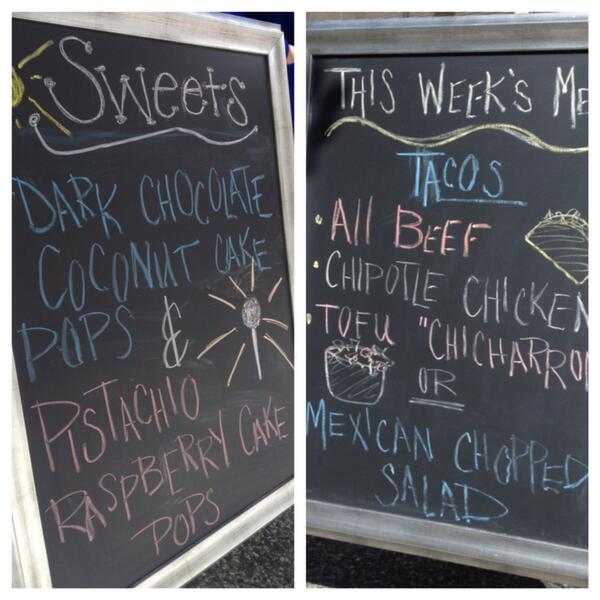 Sweets
DARK CHOCOLATE
COCONUT CAKE
POPS &
PISTACHIO
RASPBERRY CAKE
POPS
THIS WEEK'S ME
TACOS
All BEEF
CHIPOTLE CHICKEN
TOFU "CHICHARRO
OR
MEXICAN CHOPPED
SALAD